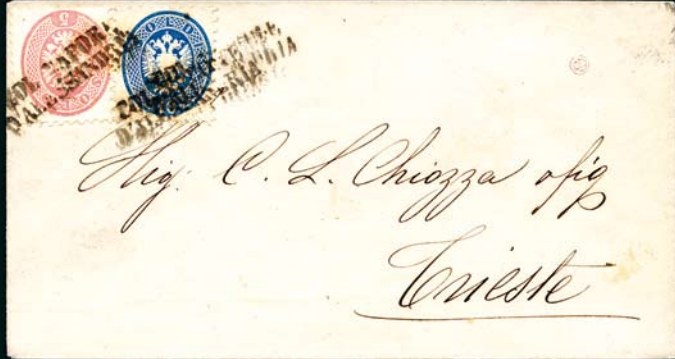 COL VAPORE
D'ALESSANDRIA
COL VAPORE
D'ALESSANDRIA
5
SOLDI
SOLDI
Sig. C. L. Chiozza & fig
Trieste